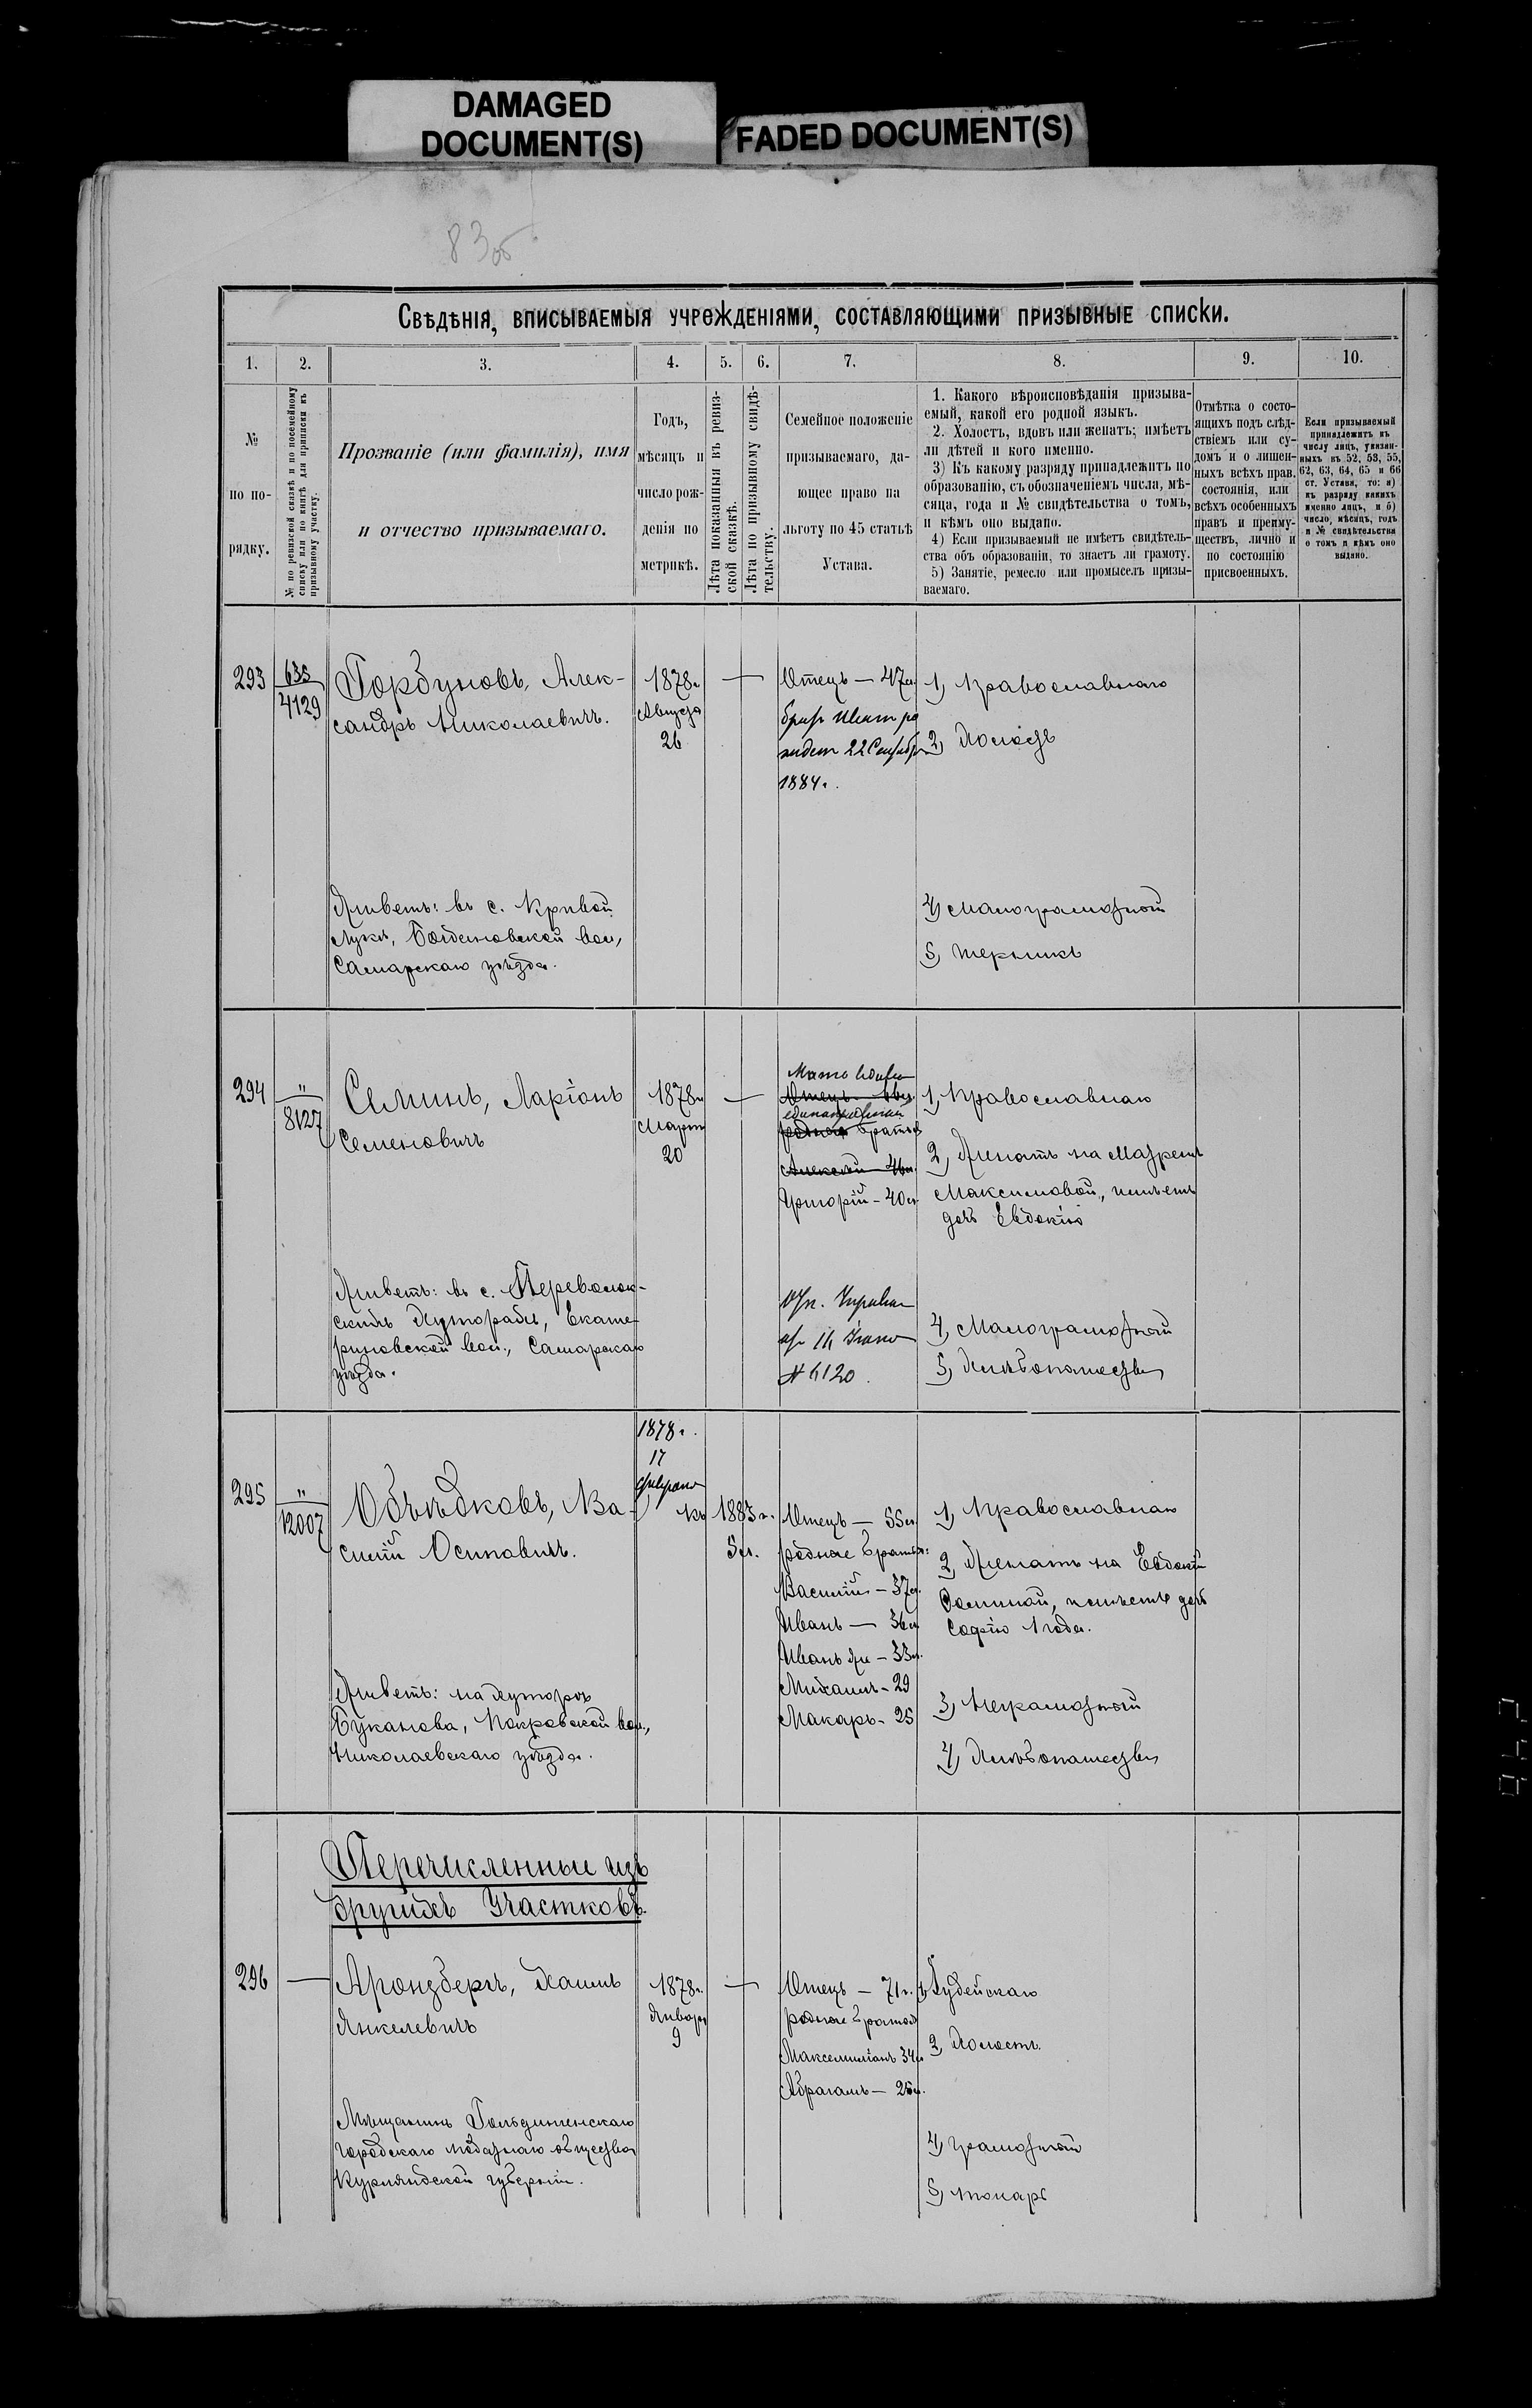 DAMAGED
DOCUMENT(S)
FADED DOCUMENT(S)
83об
Свѣдѣнія, вписываемыя учрежденіями, составляющими призывные списки.
1. 2. 3. 4. 5. 6. 7. 8. 9. 10.
№
по по-
рядку.
№ по ревизской сказкѣ и по посемейному
списку или по книгѣ для приписки къ
призывному участку.
Прозваніе (или фамилія), имя
и отчество призываемаго.
Годъ,
мѣсяцъ и
число рож-
денія по
метрикѣ.
Лѣта показанныя въ ревиз-
ской сказкѣ.
Лѣта по призывному свидѣ-
тельству.
Семейное положеніе
призываемаго, да-
ющее право на
льготу по 45 статьѣ
Устава.
1. Какого вѣроисповѣданія призыва-
емый, какой его родной языкъ.
2. Холостъ, вдовъ или женатъ; имѣетъ
ли дѣтей и кого именно.
3) Къ какому разряду принадлежитъ по
образованію, съ обозначеніемъ числа, мѣ-
сяца, года и № свидѣтельства о томъ,
и кѣмъ оно выдано.
4) Если призываемый не имѣетъ свидѣтель-
ства объ образованіи, то знаетъ ли грамоту.
5) Занятіе, ремесло или промыселъ призы-
ваемаго.
Отмѣтка о состо-
ящихъ подъ слѣд-
ствіемъ или су-
домъ и о лишен-
ныхъ всѣхъ прав.
состоянія, или
всѣхъ особенныхъ
правъ и преиму-
ществъ, лично и
по состоянію
присвоенныхъ.
Если призываемый
принадлежитъ къ
числу лицъ, указан-
ныхъ въ 52, 53, 55,
62, 63, 64, 65 и 66
ст. Устава, то: а)
къ разряду какихъ
именно лицъ, и б)
число, мѣсяцъ, годъ
и № свидѣтельства
о томъ и кѣмъ оно
выдано.
293
635
4129
Горбуновъ, Алек-
сандръ Николаевичъ.
Живетъ: въ с. Кривой
Луки, вол,
Самарскаго уѣзда.
1878г
Августа
26
Отецъ — 47л
22 Сентября
1884г.
1) Православнаго
2) Холостъ
4) Малограмотной
5)
294
"
8127
Семинъ, Ларіонъ
Семеновичъ
Живетъ: въ с. Переволок-
скихъ Хуторахъ, Екате-
риновской вол., Самарскаго
уѣзда.
1878г
Марта
20
Мать вдова
Отецъ
братья
Алексѣй
Григорій - 40л
№ 6120.
1) Православнаго
2) Женатъ на
Максимовой, имѣетъ
дочь Евдокію
4) Малограмотной
5) Хлѣбопашество
295
"
12007
Объѣдковъ, Ва-
силій Осиповичъ.
Живетъ: на хуторѣ
Буканова, Покровской вол.,
Николаевскаго уѣзда.
1878г.
17
Февраля
Къ 1883г.
5л.
Отецъ — 55л
родные братья:
Василій - 37л.
Иванъ — 36л
Иванъ же - 33л.
Михаилъ - 29
Макаръ - 25
1) Православнаго
2) Женатъ на Евдокіи
имѣетъ дочь
Софію 1 года.
3) Неграмотной
4) Хлѣбопашество
Перечисленные изъ
другихъ Участковъ.
296
Аронзбергъ, Хаимъ
Янкелевичъ
Мѣщанинъ Гольдингенскаго
городскаго податнаго общества
Курляндской губерніи.
1878г.
Января
9
Отецъ — 71г.
родные братья
Максемиліанъ 34л
Абрагамъ — 25л.
1) Іудейскаго
2) Холостъ.
4) грамотной
5) токарь